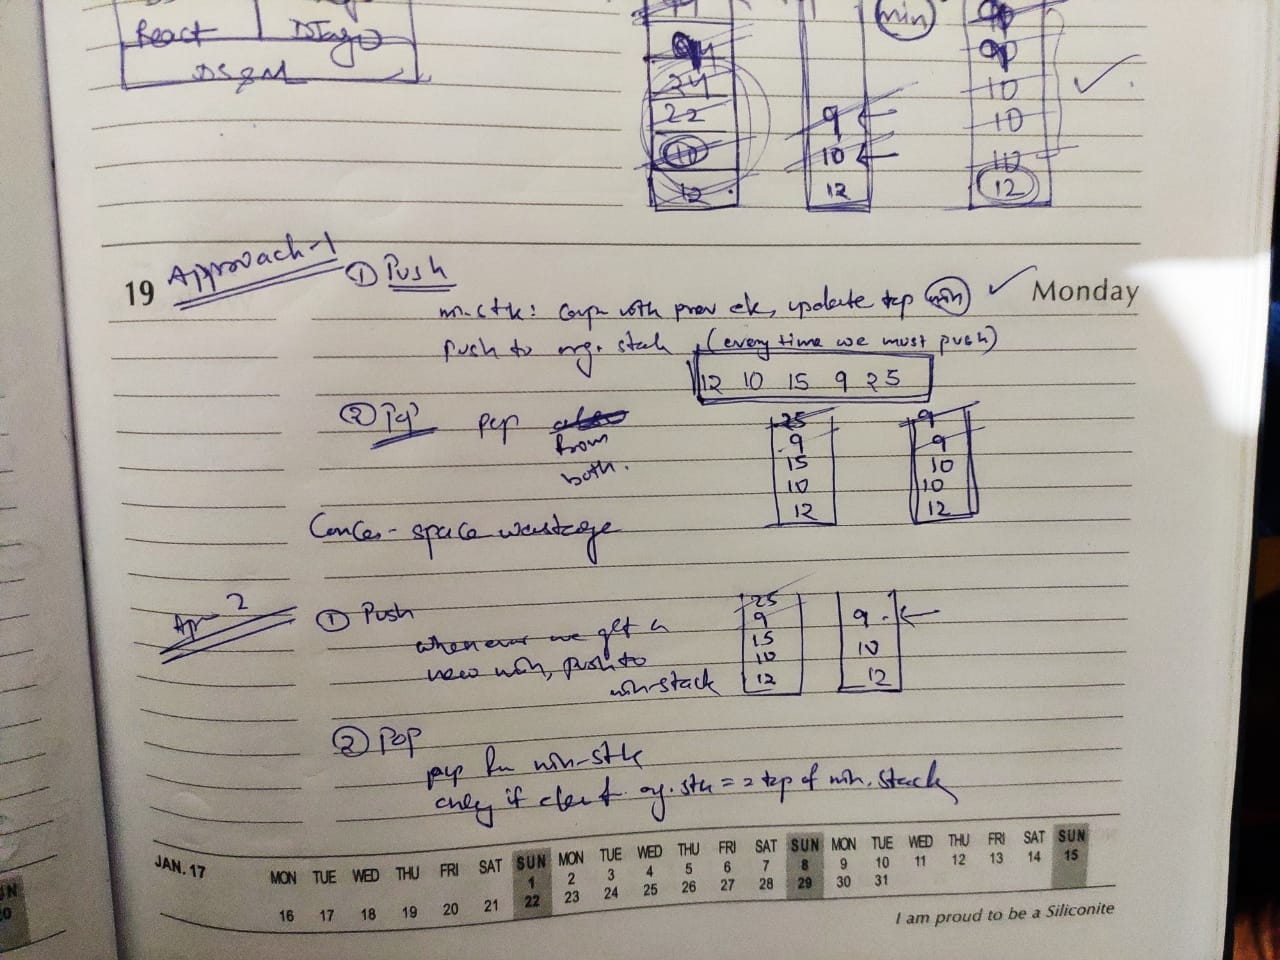 React DJango
DS & M
min
9
24
22
10
12
9
10
12
90
10
10
10
12
19 Approach-1
① Push
Monday
m-stk: with prev ele, update top min
Push to org. stack (every time we must push)
12 10 15 9 25
② Pop pop
from
both.
25
9
15
10
12
9
9
10
10
12
space wastage
Ap 2
① Push
whenever we get a
new min, push to
min-stack
25
9
15
10
12
9
10
12
② Pop
pop min-stk
only if org. stk == top of min. stack
JAN. 17
MON TUE WED THU FRI SAT SUN MON TUE WED THU FRI SAT SUN MON TUE WED THU FRI SAT SUN
1 2 3 4 5 6 7 8 9 10 11 12 13 14 15
16 17 18 19 20 21 22 23 24 25 26 27 28 29 30 31
I am proud to be a Siliconite